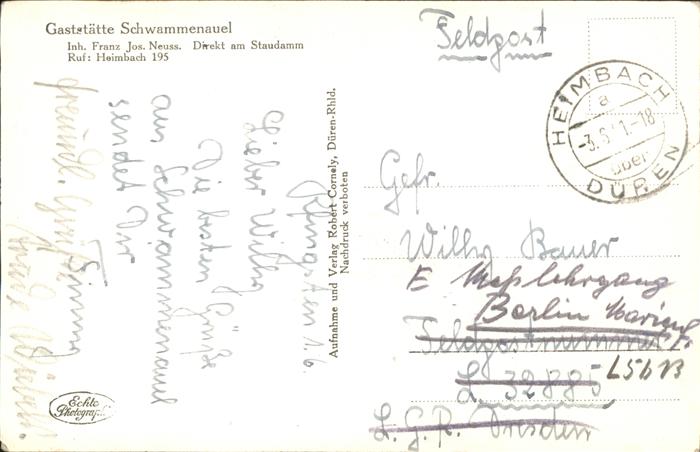 Gaststätte Schwammenauel
Inh. Franz Jos. Neuss. Direkt am Staudamm
Ruf: Heimbach 195
Pfingsten 1.6.
Lieber Willy
Die besten Grüße
am Schwammenauel
sendet Dir
freundl. Gruß
Echte
Photographie
Aufnahme und Verlag Robert Cornely, Düren-Rhld.
Nachdruck verboten
Feldpost
HEIMBACH
a
-3.6.41.-18
über
DÜREN
Gefr.
Willy Bauer
E Meßlehrgang
Berlin
Feldpostnummer
L 32885
L. G. P. Dresden